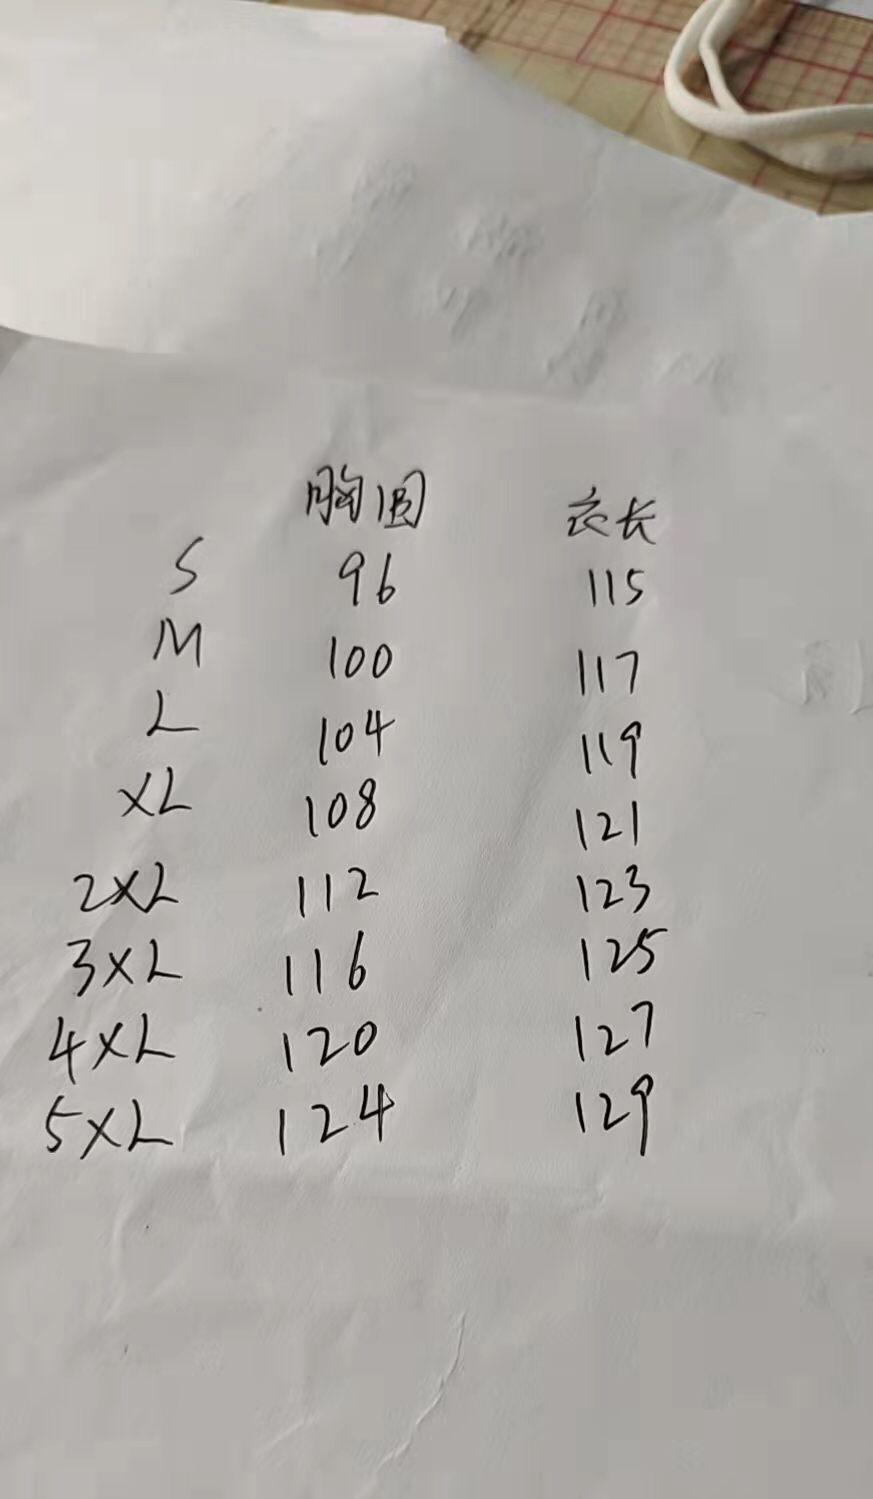 胸围 衣长
S 96 115
M 100 117
L 104 119
XL 108 121
2XL 112 123
3XL 116 125
4XL 120 127
5XL 124 129